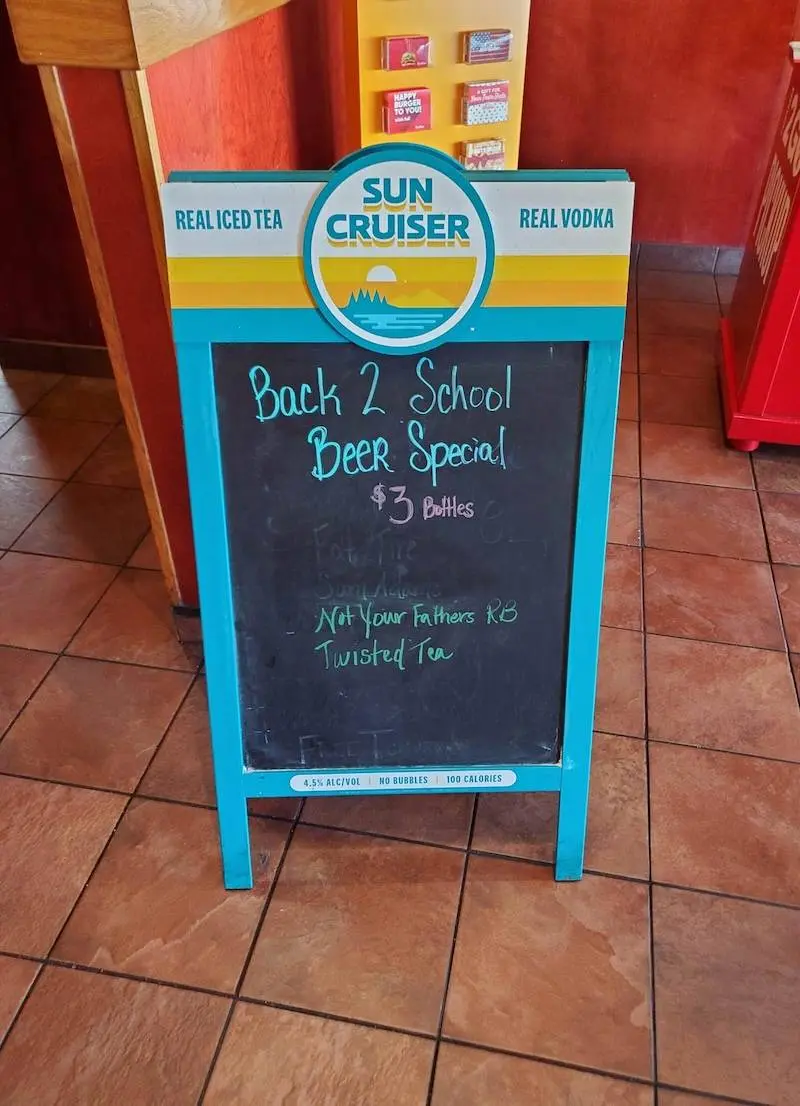 HAPPY
BURGER
TO YOU!
SUN
CRUISER
REAL ICED TEA
REAL VODKA
Back 2 School
Beer Special
$3 Bottles
Fat Tire
Sam Adams
Not Your Fathers RB
Twisted Tea
4.5% ALC/VOL | NO BUBBLES | 100 CALORIES